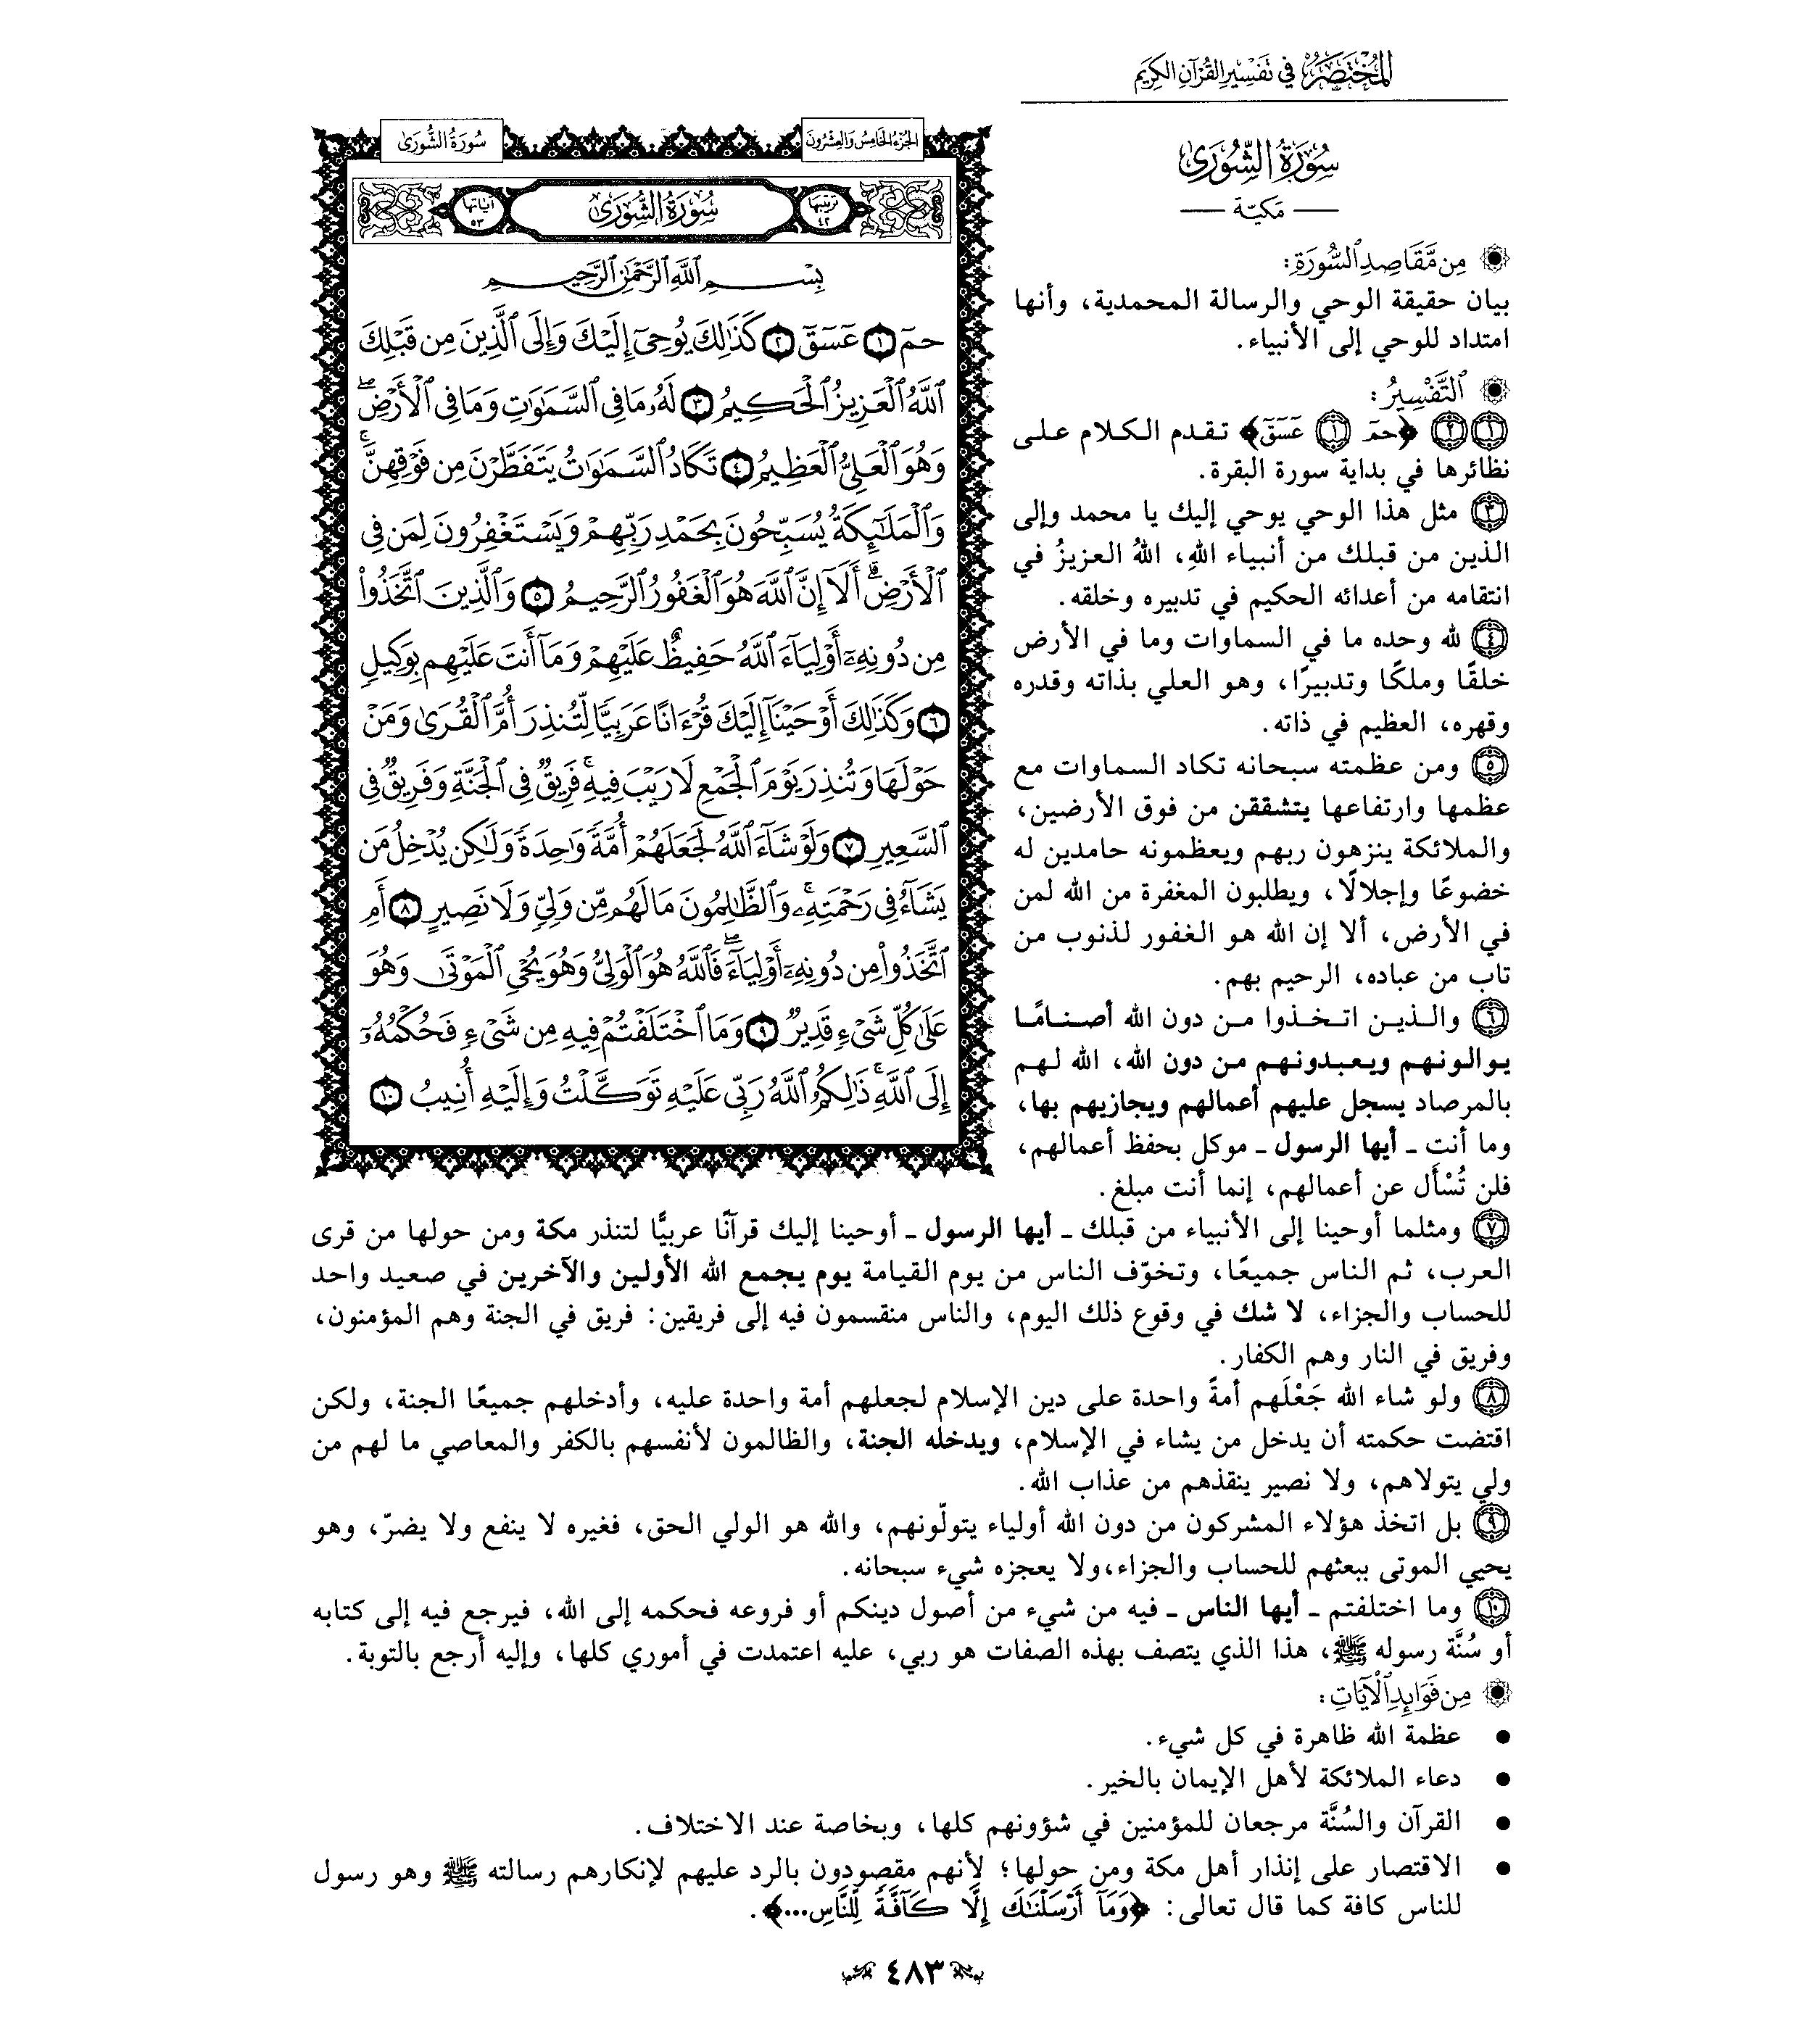 المختصر في تفسير القرآن الكريم
سورة الشورى
مكية
من مقاصد السورة:
بيان حقيقة الوحي والرسالة المحمدية، وأنها
امتداد للوحي إلى الأنبياء.
التفسير:
١ ٢ ﴿حمٓ ١ عٓسٓقٓ﴾ تقدم الكلام على
نظائرها في بداية سورة البقرة.
٣ مثل هذا الوحي يوحي إليك يا محمد وإلى
الذين من قبلك من أنبياء اللهِ، اللهُ العزيزُ في
انتقامه من أعدائه الحكيم في تدبيره وخلقه.
٤ لله وحده ما في السماوات وما في الأرض
خلقًا وملكًا وتدبيرًا، وهو العلي بذاته وقدره
وقهره، العظيم في ذاته.
٥ ومن عظمته سبحانه تكاد السماوات مع
عظمها وارتفاعها يتشققن من فوق الأرضين،
والملائكة ينزهون ربهم ويعظمونه حامدين له
خضوعًا وإجلالًا، ويطلبون المغفرة من الله لمن
في الأرض، ألا إن الله هو الغفور لذنوب من
تاب من عباده، الرحيم بهم.
٦ والذين اتخذوا من دون الله أصنامًا
يوالونهم ويعبدونهم من دون الله، الله لهم
بالمرصاد يسجل عليهم أعمالهم ويجازيهم بها،
وما أنت ـ أيها الرسول ـ موكل بحفظ أعمالهم،
فلن تُسْأَل عن أعمالهم، إنما أنت مبلغ.
الجزء الخامس والعشرون
سورة الشورى
ترتيبها ٤٢
سورة الشورى
آياتها ٥٣
بِسْمِ ٱللَّهِ ٱلرَّحْمَٰنِ ٱلرَّحِيمِ
حمٓ ١ عٓسٓقٓ ٢ كَذَٰلِكَ يُوحِىٓ إِلَيْكَ وَإِلَى ٱلَّذِينَ مِن قَبْلِكَ
ٱللَّهُ ٱلْعَزِيزُ ٱلْحَكِيمُ ٣ لَهُۥ مَا فِى ٱلسَّمَٰوَٰتِ وَمَا فِى ٱلْأَرْضِۖ
وَهُوَ ٱلْعَلِىُّ ٱلْعَظِيمُ ٤ تَكَادُ ٱلسَّمَٰوَٰتُ يَتَفَطَّرْنَ مِن فَوْقِهِنَّۚ
وَٱلْمَلَٰٓئِكَةُ يُسَبِّحُونَ بِحَمْدِ رَبِّهِمْ وَيَسْتَغْفِرُونَ لِمَن فِى
ٱلْأَرْضِۗ أَلَآ إِنَّ ٱللَّهَ هُوَ ٱلْغَفُورُ ٱلرَّحِيمُ ٥ وَٱلَّذِينَ ٱتَّخَذُوا۟
مِن دُونِهِۦٓ أَوْلِيَآءَ ٱللَّهُ حَفِيظٌ عَلَيْهِمْ وَمَآ أَنتَ عَلَيْهِم بِوَكِيلٍ
٦ وَكَذَٰلِكَ أَوْحَيْنَآ إِلَيْكَ قُرْءَانًا عَرَبِيًّا لِّتُنذِرَ أُمَّ ٱلْقُرَىٰ وَمَنْ
حَوْلَهَا وَتُنذِرَ يَوْمَ ٱلْجَمْعِ لَا رَيْبَ فِيهِۚ فَرِيقٌ فِى ٱلْجَنَّةِ وَفَرِيقٌ فِى
ٱلسَّعِيرِ ٧ وَلَوْ شَآءَ ٱللَّهُ لَجَعَلَهُمْ أُمَّةً وَٰحِدَةً وَلَٰكِن يُدْخِلُ مَن
يَشَآءُ فِى رَحْمَتِهِۦۚ وَٱلظَّٰلِمُونَ مَا لَهُم مِّن وَلِىٍّ وَلَا نَصِيرٍ ٨ أَمِ
ٱتَّخَذُوا۟ مِن دُونِهِۦٓ أَوْلِيَآءَۖ فَٱللَّهُ هُوَ ٱلْوَلِىُّ وَهُوَ يُحْىِ ٱلْمَوْتَىٰ وَهُوَ
عَلَىٰ كُلِّ شَىْءٍ قَدِيرٌ ٩ وَمَا ٱخْتَلَفْتُمْ فِيهِ مِن شَىْءٍ فَحُكْمُهُۥٓ
إِلَى ٱللَّهِۚ ذَٰلِكُمُ ٱللَّهُ رَبِّى عَلَيْهِ تَوَكَّلْتُ وَإِلَيْهِ أُنِيبُ ١٠
٧ ومثلما أوحينا إلى الأنبياء من قبلك ـ أيها الرسول ـ أوحينا إليك قرآنًا عربيًّا لتنذر مكة ومن حولها من قرى
العرب، ثم الناس جميعًا، وتخوّف الناس من يوم القيامة يوم يجمع الله الأولين والآخرين في صعيد واحد
للحساب والجزاء، لا شك في وقوع ذلك اليوم، والناس منقسمون فيه إلى فريقين: فريق في الجنة وهم المؤمنون،
وفريق في النار وهم الكفار.
٨ ولو شاء الله جَعْلَهم أمةً واحدة على دين الإسلام لجعلهم أمة واحدة عليه، وأدخلهم جميعًا الجنة، ولكن
اقتضت حكمته أن يدخل من يشاء في الإسلام، ويدخله الجنة، والظالمون لأنفسهم بالكفر والمعاصي ما لهم من
ولي يتولاهم، ولا نصير ينقذهم من عذاب الله.
٩ بل اتخذ هؤلاء المشركون من دون الله أولياء يتولّونهم، والله هو الولي الحق، فغيره لا ينفع ولا يضرّ، وهو
يحيي الموتى ببعثهم للحساب والجزاء،ولا يعجزه شيء سبحانه.
١٠ وما اختلفتم ـ أيها الناس ـ فيه من شيء من أصول دينكم أو فروعه فحكمه إلى الله، فيرجع فيه إلى كتابه
أو سُنَّة رسوله ﷺ، هذا الذي يتصف بهذه الصفات هو ربي، عليه اعتمدت في أموري كلها، وإليه أرجع بالتوبة.
من فوائد الآيات:
● عظمة الله ظاهرة في كل شيء.
● دعاء الملائكة لأهل الإيمان بالخير.
● القرآن والسُنَّة مرجعان للمؤمنين في شؤونهم كلها، وبخاصة عند الاختلاف.
● الاقتصار على إنذار أهل مكة ومن حولها؛ لأنهم مقصودون بالرد عليهم لإنكارهم رسالته ﷺ وهو رسول
للناس كافة كما قال تعالى: ﴿وَمَآ أَرْسَلْنَٰكَ إِلَّا كَآفَّةً لِّلنَّاسِ...﴾.
٤٨٣